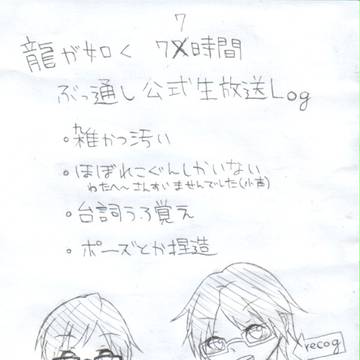 7
龍が如く 7X時間
ぶっ通し公式生放送Log
・雑かつ汚い
・ほぼれこぐんしかいない
わたへ〜さんすいませんでした(小声)
・台詞うろ覚え
・ポーズとか捏造
recog